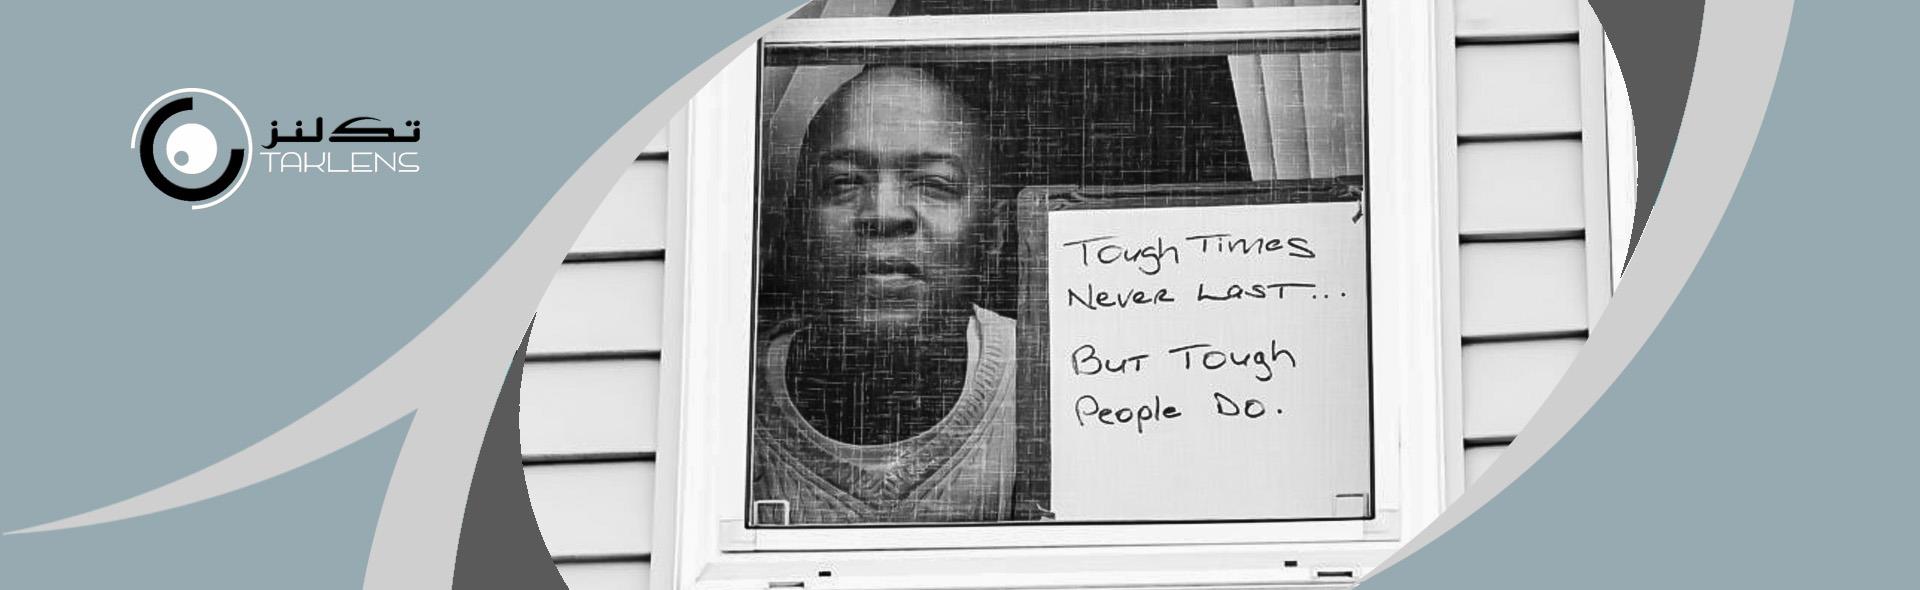 تکلنز
TAKLENS
Tough Times
Never Last...
But Tough
People Do.